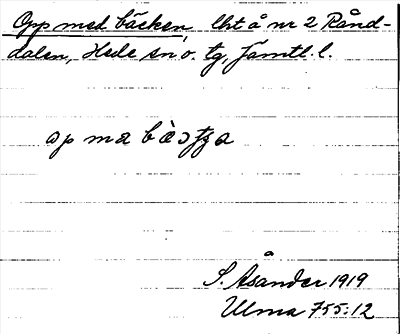 Opp med bäcken, lht å nr 2 Rånd-
dalen, Hede sn o. tg, Jämtl. l.
ɔp ma b
S. Åsander 1919
Ulma 755:12